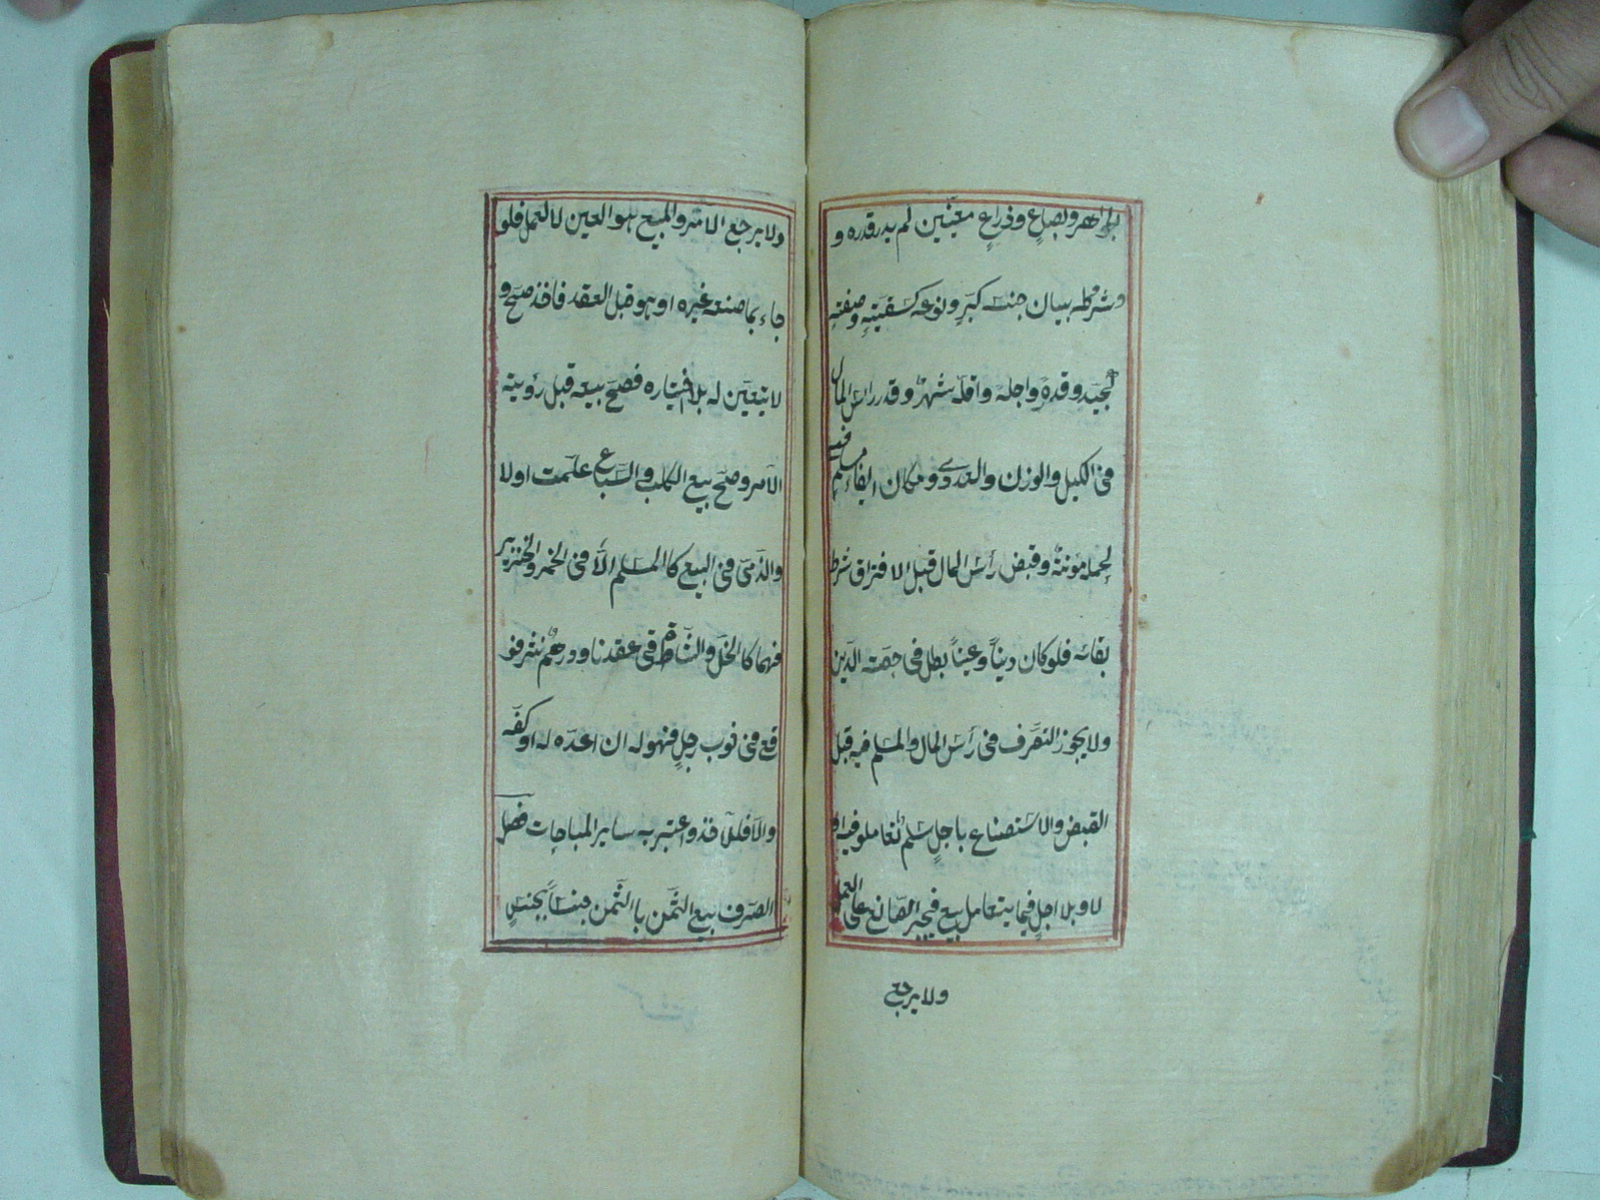 وبصاع وذراع معينين لم يدر قدره و
وشرطه بيان جنسه كبر ونوعه كسقيته وصفته
كجيد وقدره واجله واقله شهر وقدر راس المال
فى الكيل والوزن والعددى ومكان ايفاء مسلم فيه
لحمله مؤنة وقبض رأس المال قبل الافتراق شرط
بقائه فلو كان ديناً وعيناً بطل فى حصة الدين
ولا يجوز التصرف فى رأس المال والمسلم فيه قبل
القبض والاستصناع باجلٍ سلم تعاملو فيه او
لا وبلا اجلٍ فيما يتعامل بيع فيجبر الصانع على العمل
ولا يرجع
ولا يرجع الامر والمبيع هو العين لا العمل فلو
جاء بما صنعه غيره او هو قبل العقد فاخذ صح و
لا يتعين له بلا اختياره فصح بيعه قبل رؤيته
الآمر وصح بيع الكلب والسباع علمت او لا
والذمى فى البيع كالمسلم الا فى الخمر والخنزير
فهما كا الخل والشاة فى عقدنا ودرهم نثر فو
قع فى ثوب رجلٍ فهو له ان اعده له او كفه
والا فللاخذ واعتبر به ساير المباحات فصل
الصرف بيع الثمن باالثمن جنساً بجنسٍ